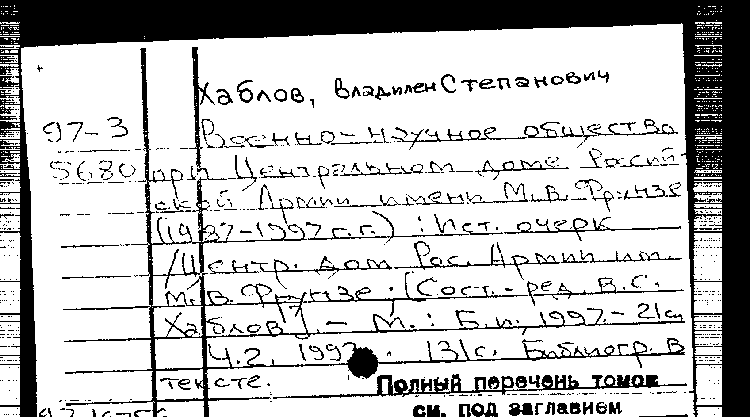 Хаблов, Владилен Степанович
97-3 Военно-научное общество
5680 при Центральном доме Россий-
ской Армии имени М.В. Фрунзе
(1937-1997 г.г.) : Ист. очерк
/Центр. дом Рос. Армии им.
М.В. Фрунзе ; [Сост.-ред. В.С.
Хаблов]. - М. : Б.и., 1997. - 21см
Ч.2. 1997. 131с. Библиогр. в
тексте.
Полный перечень томов
см. под заглавием